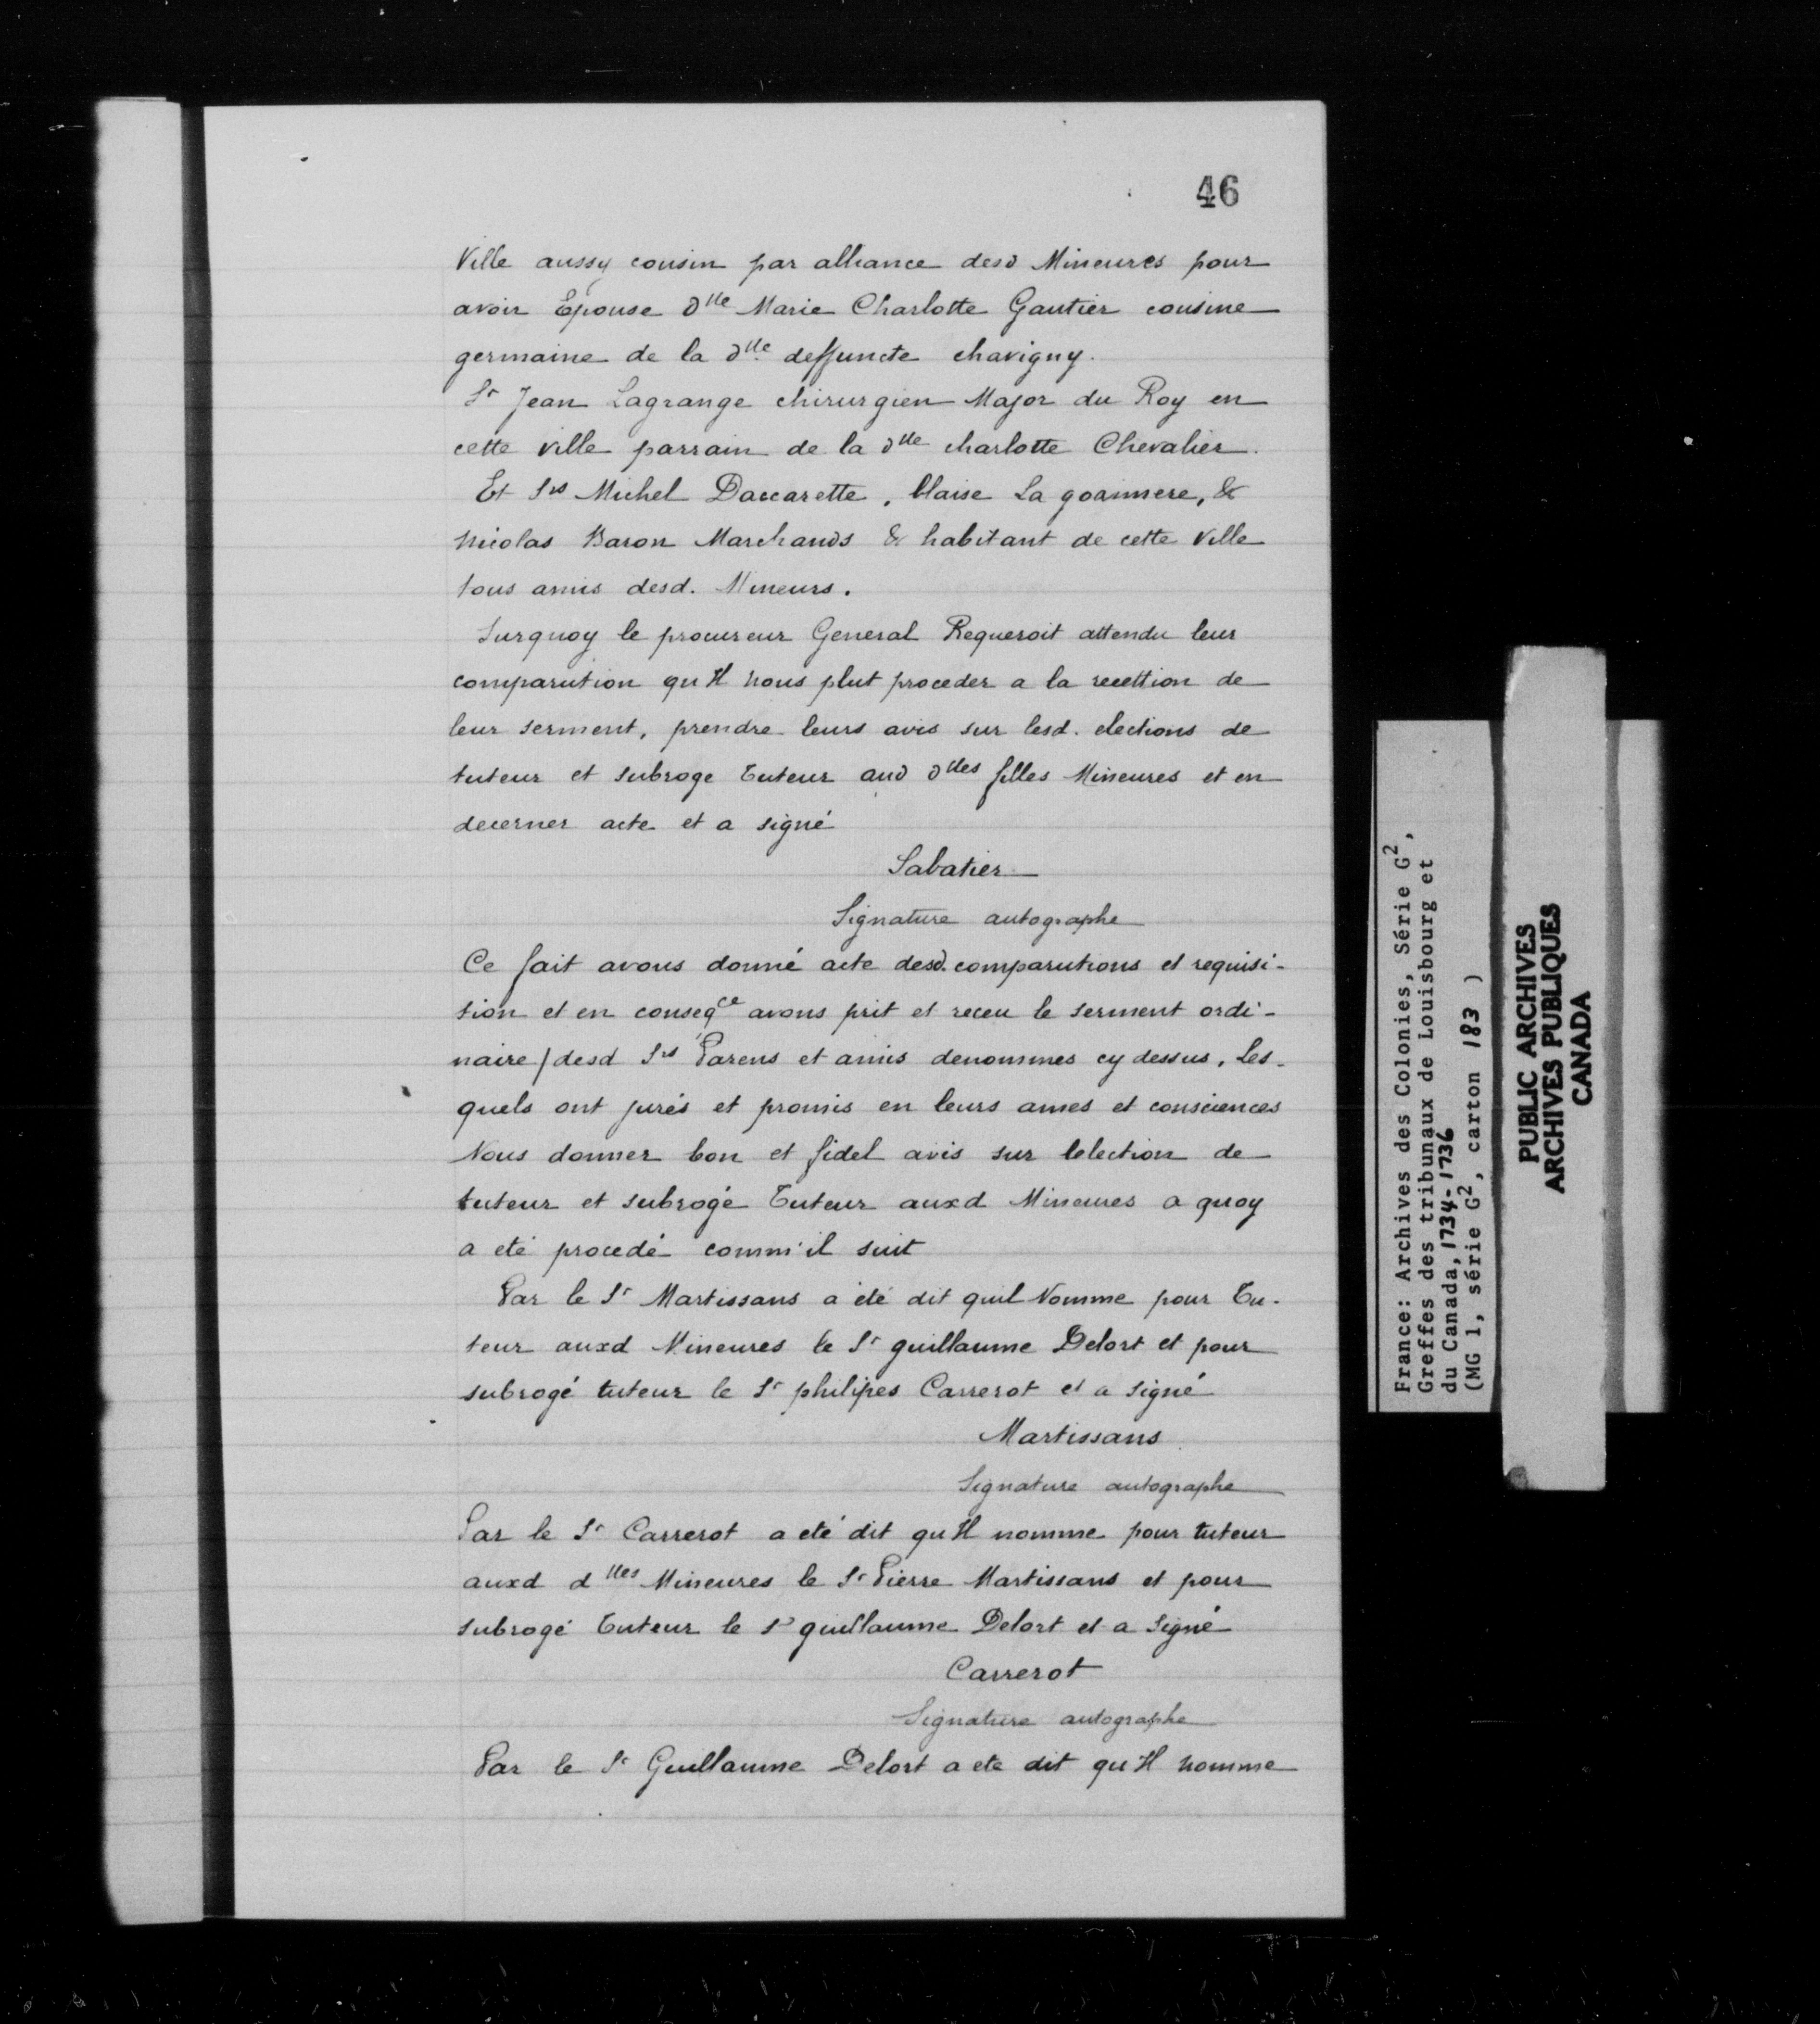 46
Ville aussy cousin par alliance desd Mineures pour
avoir Epouse dlle Marie Charlotte Gautier cousine
germaine de la dlle deffuncte chavigny.
Sr Jean Lagrange chirurgien Major du Roy en
cette ville parrain de la dlle charlotte Chevalier.
Et Srs Michel Daccarette, blaise La goannere, &
Nicolas Baron Marchands & habitant de cette Ville
tous amis desd. Mineurs.
Surquoy le procureur General Requeroit attendu leur
comparution qu'Il nous plut proceder a la recettion de
leur serment, prendre leurs avis sur lesd. elections de
tuteur et subroge Tuteur aud dlles filles Mineures et en
decerner acte et a signé
Sabatier
Signature autographe
Ce fait avous donné acte desd. comparutions et requisi-
tion et en conseqce avons prit et receu le serment ordi-
naire / desd Srs Parens et amis denommes cy dessus, Les-
quels ont jurés et promis en leurs ames et consciences
Nous donner bon et fidel avis sur lelection de
tuteur et subrogé Tuteur auxd Mineures a quoy
a eté procedé comm'il suit
Par le Sr Martissans a été dit quil Nomme pour Tu-
teur auxd Mineures le Sr guillaume Delort et pour
subrogé tuteur le Sr philipes Carrerot et a signé
Martissans
Signature autographe
Par le Sr Carrerot a eté dit qu'Il nomme pour tuteur
auxd dlles Mineures le Sr Pierre Martissans et pour
subrogé Tuteur le Sr guillaume Delort et a Signé
Carrerot
Signature autographe
Par le Sr Guillaume Delort a ete dit qu'Il nomme
France: Archives des Colonies, Série G2,
Greffes des tribunaux de Louisbourg et
du Canada, 1734-1736
(MG 1, série G2, carton 183 )
PUBLIC ARCHIVES
ARCHIVES PUBLIQUES
CANADA